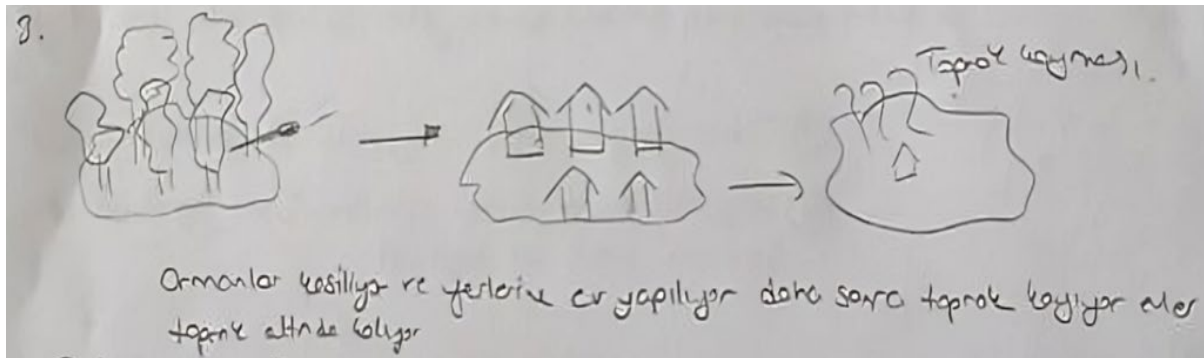 3.
Toprak kayması.
Ormanlar kesiliyor ve yerlerine ev yapılıyor daha sonra toprak kayıyor evler
toprak altında kalıyor